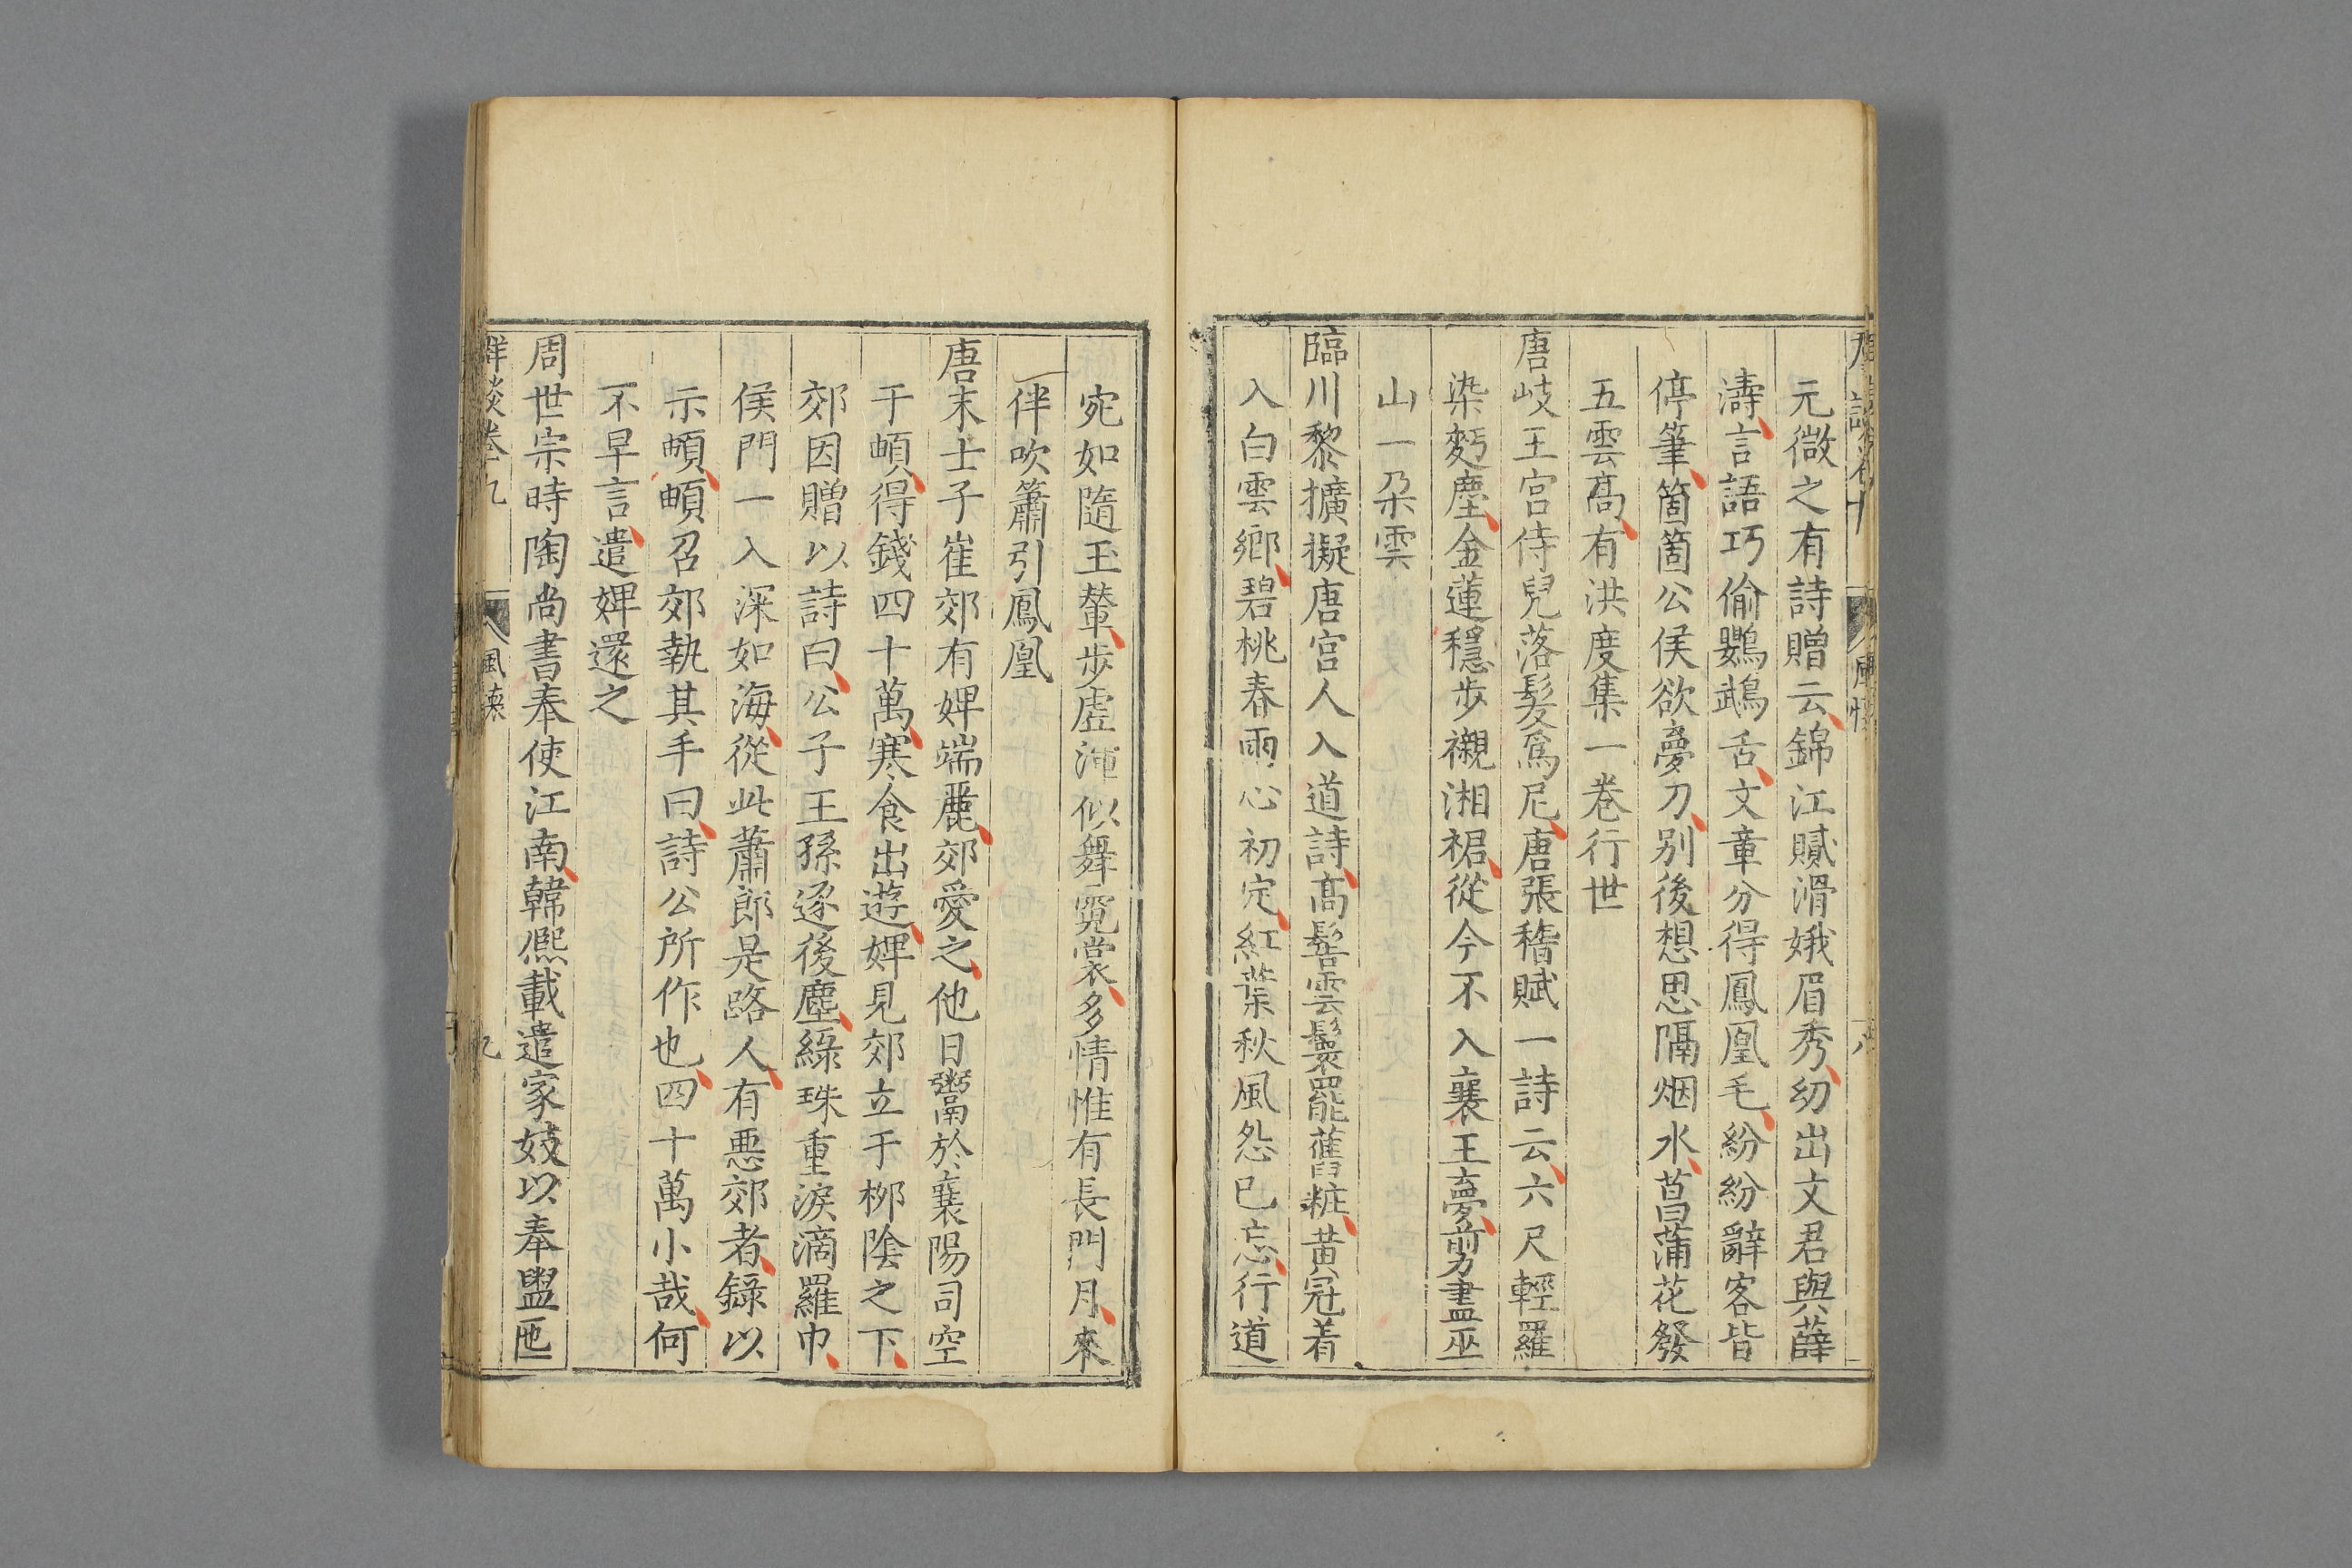 元微之有詩贈云錦江膩滑娥眉秀幻出文君與薛
濤言語巧偷鸚鵡舌文章分得鳳凰毛紛紛辭客皆
停筆箇箇公侯欲夢刀别後想思隔烟水菖蒲花發
五雲髙有洪度集一卷行世
唐岐王宫侍兒落髮爲尼唐張稽賦一詩云六尺輕羅
染麹塵金蓮穩步襯湘裙從今不入襄王夢剪盡巫
山一朵雲
臨川黎擴擬唐宫人入道詩髙髻雲鬟罷舊粧黄冠着
入白雲鄉碧桃春雨心初定紅葉秋風怨已忘行道
宛如隨玉輦步虛渾似舞霓裳多情惟有長門月來
伴吹簫引鳳凰
唐末士子崔郊有婢端麗郊愛之他日鬻於襄陽司空
于頔得錢四十萬寒食出遊婢見郊立于栁陰之下
郊因贈以詩曰公子王孫逐後塵綠珠重淚滴羅巾
侯門一入深如海從此蕭郎是路人有惡郊者録以
示頔頔召郊執其手曰詩公所作也四十萬小哉何
不早言遣婢還之
周世宗時陶尚書奉使江南韓熈載遣家妓以奉盥匜
群談卷九 風懷 九